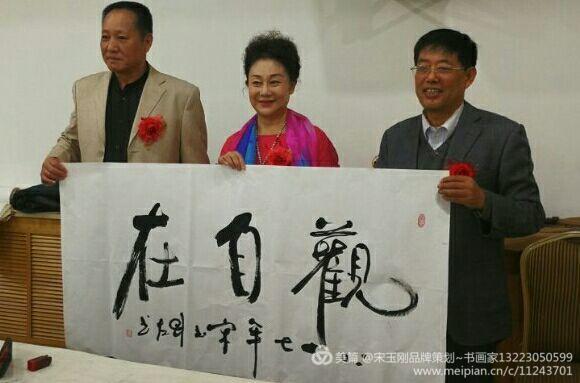 觀自在
七年宋玉剛書
美篇 @宋玉刚品牌策划~书画家13223050599
www.meipian.cn/c/11243701